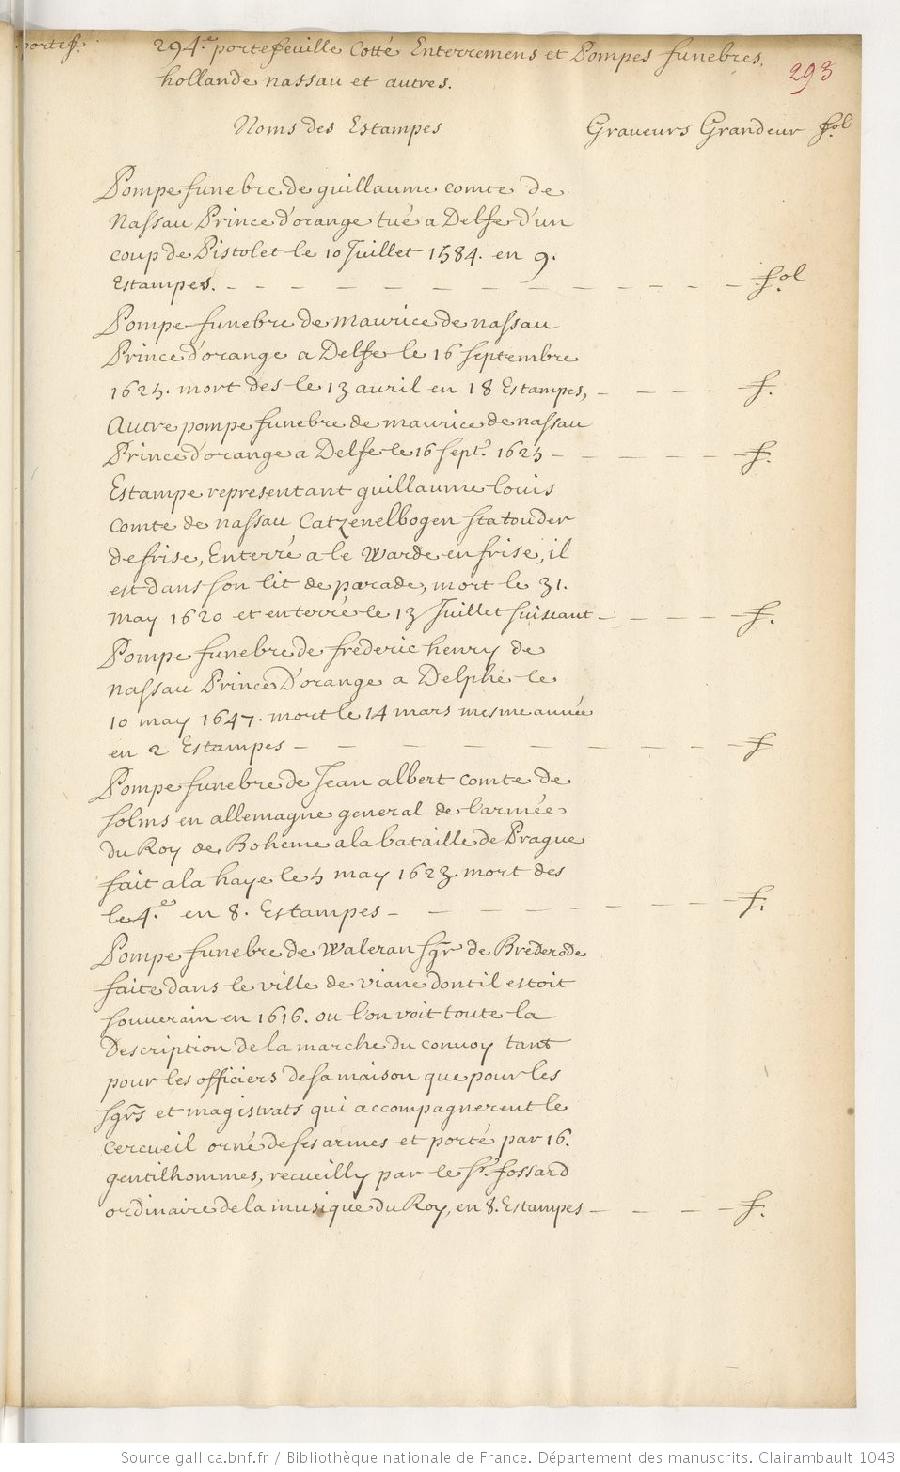 portef.
294.e portefeuille Cotté Enterremens et Pompes funebres,
hollande nassau et autres.
293
Noms des Estampes
Graveurs Grandeur fol
Pompe funebre de guillaume comte de
Nassau Prince d'orange tué a Delfe d'un
coup de Pistolet le 10 Juillet 1584. en 9.
Estampes. fol
Pompe funebre de maurice de nassau
Prince d'orange a Delfe le 16 septembre
1625. mort des le 13 avril en 18 Estampes, f.
Autre pompe funebre de maurice de nassau
Prince d'orange a Delfe le 16 sept.e 1625 f.
Estampe representant guillaume louis
comte de nassau Catzenelbogen statouder
de frise, Enterré a le Warde en frise, il
est dans son lit de parade, mort le 31.
may 1620 et enterré le 13 Juillet suivant f.
Pompe funebre de frederic henry de
nassau Prince D'orange a Delphe le
10 may 1647. mort le 14 mars mesme année
en 2 Estampes f
Pompe funebre de Jean albert comte de
solms en allemagne general de l'armée
du Roy de Boheme a la bataille de Prague
fait a la haye le 5 may 1623. mort des
le 4.e en 8. Estampes f.
Pompe funebre de Waleran sgr de Brederode
faite dans le ville de viane dont il estoit
souverain en 1616. ou l'on voit toute la
Description de la marche du convoy tant
pour les officiers de sa maison que pour les
sgrs et magistrats qui accompagnerent le
cercueil orné de ses armes et porté par 16.
gentilhommes, recueilly par le sr. fossard
ordinaire de la musique du Roy, en 8. Estampes f.
Source gallica.bnf.fr / Bibliothèque nationale de France. Département des manuscrits. Clairambault 1043